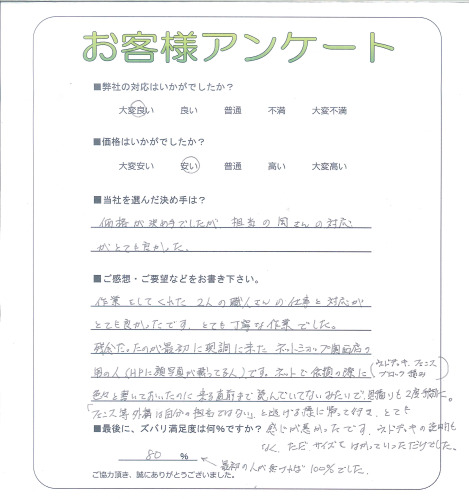 お客様アンケート
■弊社の対応はいかがでしたか？
大変良い 良い 普通 不満 大変不満
■価格はいかがでしたか？
大変安い 安い 普通 高い 大変高い
■当社を選んだ決め手は？
価格が決め手でしたが 担当の岡さんの対応
がとても良かった。
■ご感想・ご要望などをお書き下さい。
作業をしてくれた 2人の職人さんの仕事と対応が
とても良かったです。とても丁寧な作業でした。
残念だったのが最初に現調に来た ネットショップ
男の人(HPに顔写真が載ってる人)です。ネットで依頼の際に(ウッドデッキ、フェンス
ブロック積み)
色々と書いておいたのに 来る直前まで読んでいないみたいで、見積りも2度手間に。
「フェンス等外構は自分の担当ではない」と逃げる様に帰って行き、とても
■最後に、ズバリ満足度は何%ですか？ 感じが悪かったです。ウッドデッキの説明も
なく、ただサイズをはかっていっただけでした。
80 %
最初の人が来なければ100%でした。
ご協力頂き、誠にありがとうございました。